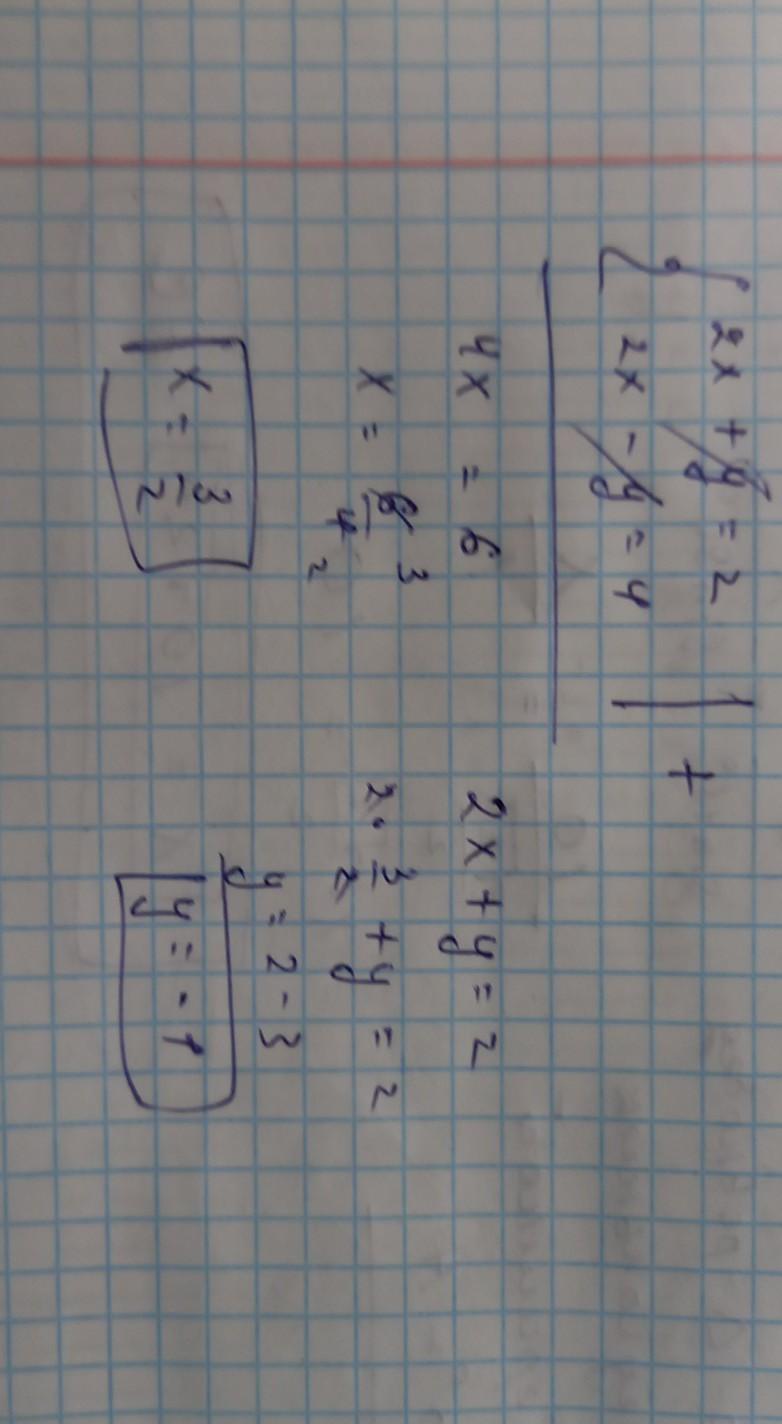 2x + y = 2
2x - y = 4 | +
4x = 6
x = 6/4 3/2
x = 3/2
2x + y = 2
2 · 3/2 + y = 2
y = 2 - 3
y = -1